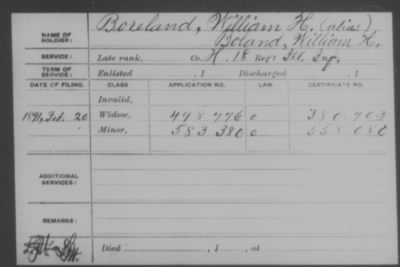 NAME OF SOLDIER: Boreland, William H. (alias)
Boland, William H.
SERVICE: Late rank, Co. H, 18 Reg't Ill. Inf.
TERM OF SERVICE: Enlisted , 1 Discharged , 1
DATE OF FILING. CLASS APPLICATION NO. LAW CERTIFICATE NO.
Invalid,
1891, Feb. 20 Widow, 498.776 0 380.703
Minor, 583 380 0 558 080
ADDITIONAL SERVICES:
REMARKS:
Died , 1 , at